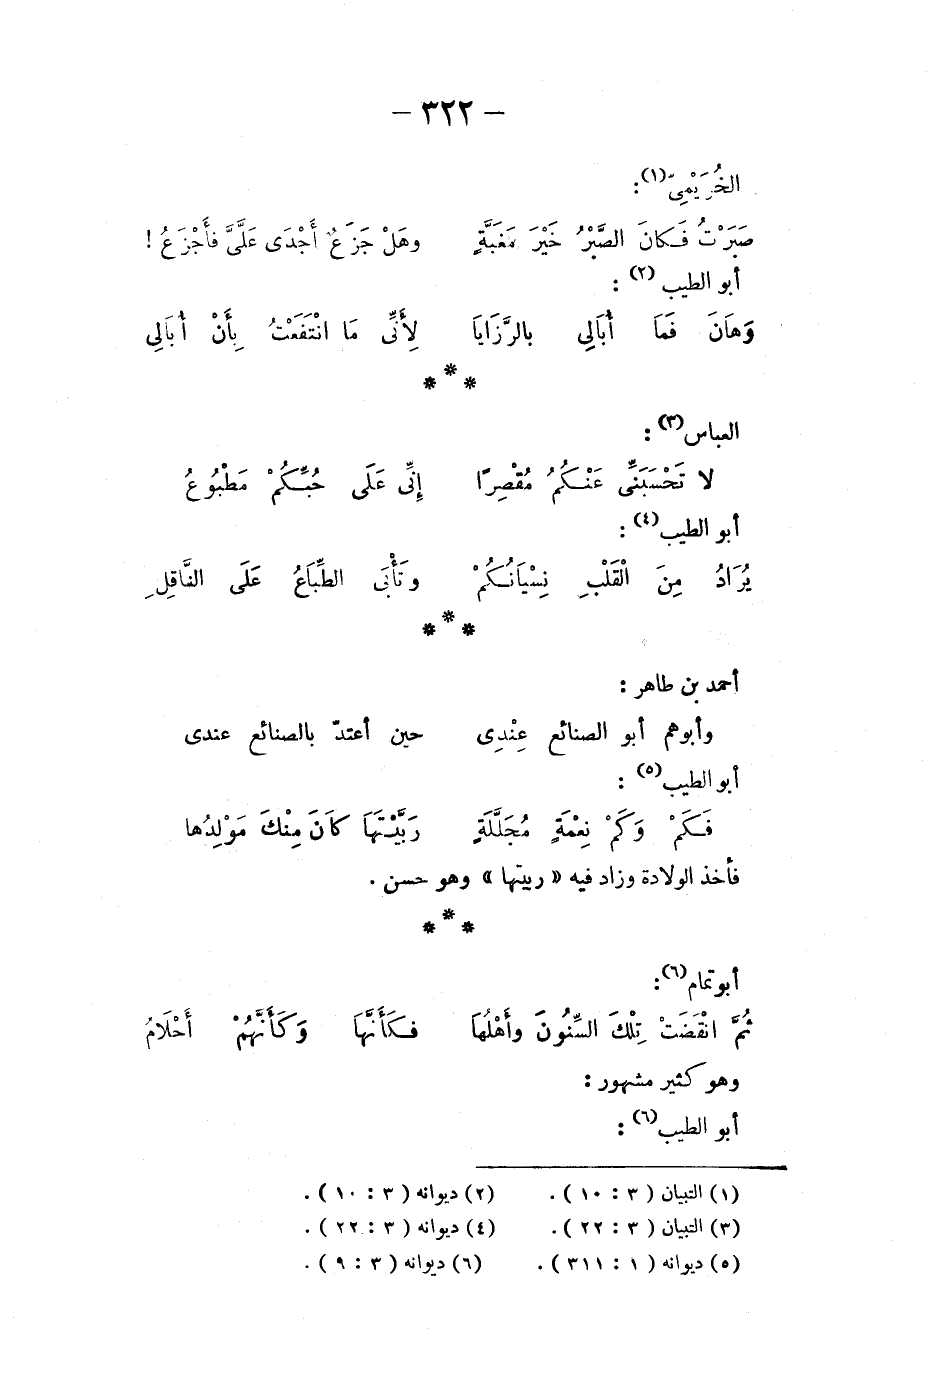 — ٣٢٢ —
الخُرَيْمِىّ(١):
صَبَرْتُ فَكانَ الصَّبْرُ خَيْرَ مَغَبَّةٍ وهَلْ جَزَعٌ أَجْدَى عَلَىَّ فأَجْزَعُ !
أبو الطيب (٢) :
وَهَانَ فَمَا أُبَالِي بالرَّزَايَا لِأَنِّى مَا انْتَفَعْتُ بِأَنْ أُبَالِي
***
العباس(٣) :
لا تَحْسَبَنِّى عَنْكُمُ مُقْصِرًا إِنِّى عَلَى حُبِّكُمْ مَطْبُوعُ
أبو الطيب(٤) :
يُرَادُ مِنَ الْقَلْبِ نِسْيَانُكُمْ وتَأْبَى الطِّبَاعُ عَلَى النَّاقِلِ
***
أحمد بن طاهر :
وأبوهم أبو الصنائع عِنْدِى حين أعتدّ بالصنائع عندى
أبو الطيب(٥) :
فَكَمْ وَكَمْ نِعْمَةٍ مُجَلَّلَةٍ رَبَّيْتَهَا كَانَ مِنْكَ مَوْلِدُها
فأخذ الولادة وزاد فيه « ربيتها » وهو حسن .
***
أبو تمام(٦):
ثُمَّ انْقَضَتْ تِلْكَ السِّنُونَ وأَهْلُهَا فكَأَنَّهَا وَكَأَنَّهُمْ أَحْلَامُ
وهو كثير مشهور :
أبو الطيب(٦) :
(١) التبيان ( ٣ : ١٠ ) . (٢) ديوانه ( ٣ : ١٠ ) .
(٣) التبيان ( ٣ : ٢٢ ) . (٤) ديوانه ( ٣ : ٢٢ ) .
(٥) ديوانه ( ١ : ٣١١ ) . (٦) ديوانه ( ٣ : ٩ ) .